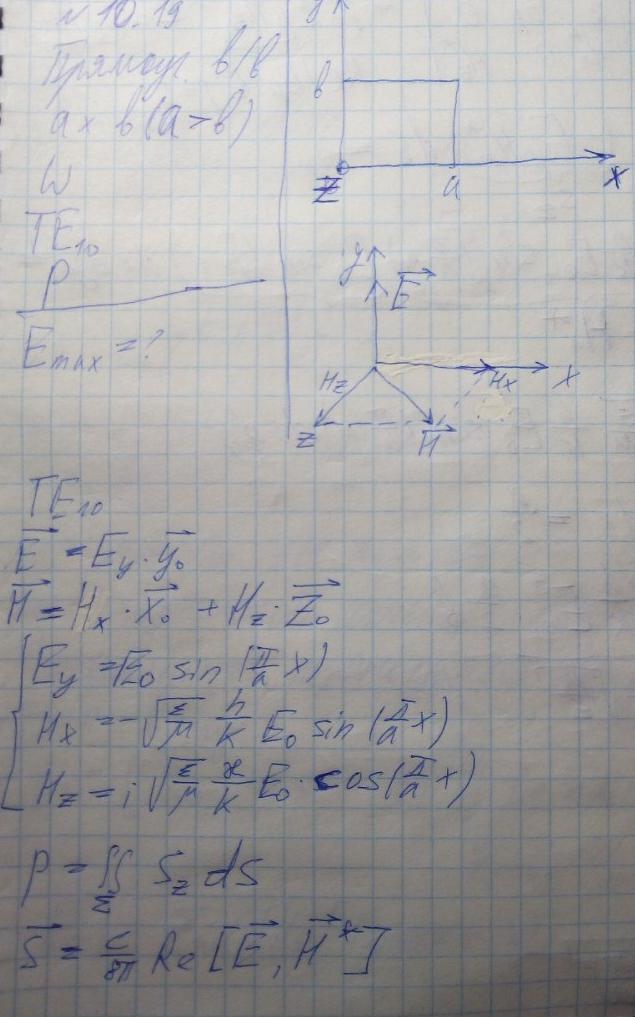 №10.19
Прямоуг. в/в
a × b (a > b)
ω
TE₁₀
P
Eₘₐₓ = ?
y
b
Z
a
X
y
E⃗
Hz
Hx
X
Z
H⃗
TE₁₀
E⃗ = Ey · y⃗₀
H⃗ = Hx · x⃗₀ + Hz · Z⃗₀
Ey = E₀ sin (π/a x)
Hx = -√(ε/μ) h/k E₀ sin (π/a x)
Hz = i √(ε/μ) æ/k E₀ · cos (π/a x)
P = ∬_Σ Sz ds
S⃗ = c/8π Re [E⃗, H⃗*]